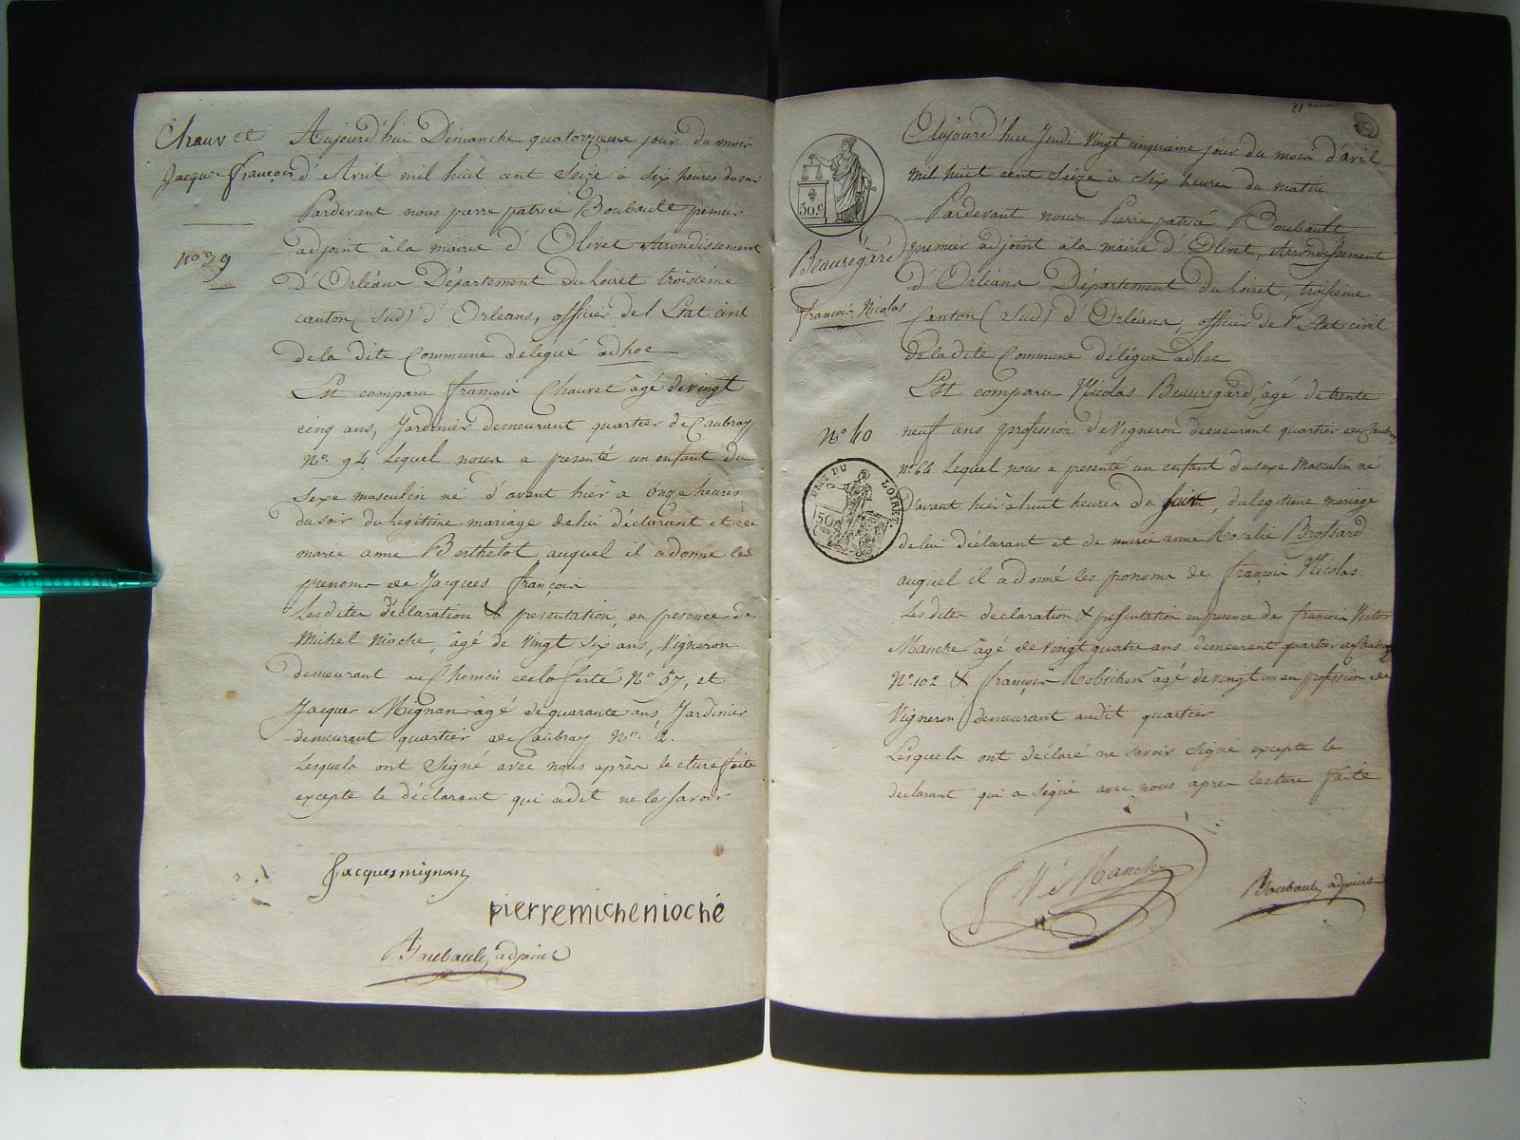 Chauvet
Jacques François
N° 39
Aujourd'hui Dimanche quatorzieme jour du mois
d'Avril mil huit cent seize à six heures du soir
Pardevant nous pierre patrice Boubault premier
adjoint à la mairie d'Olivet Arrondissement
d'Orléans Département du Loiret troisieme
canton (Sud) d'Orléans, officier de l'Etat civil
de la dite Commune delegué adhoc
Est comparu françois Chauvet âgé de vingt
cinq ans, Jardinier demeurant quartier de Caubray
N° 94 Lequel nous a presenté un enfant du
sexe masculin né d'avant hier à onze heures
du soir du legitime mariage de lui déclarant et de
marie anne Berthelot auquel il a donné les
prenoms de Jacques françois
Les dites déclaration & presentation, en presence de
Michel Nioche, âgé de vingt six ans, Vigneron
demeurant au Chemin de la ferté N° 57, et
Jacques Mignan âgé de quarante ans Jardinier
demeurant quartier de Caubray N° 2.
Lesquels ont signé avec nous après lecture faite
excepté le déclarant qui a dit ne le savoir
Jacques mignan
pierre miche nioché
Boubault, adjoint
50 c
Beauregard
françois Nicolas
N° 40
DEP. DU LOIRET
50
Aujourd'hui Jeudi vingt cinquieme jour du mois d'avril
mil huit cent seize à six heures du matin
Pardevant nous Pierre patrice Boubault
premier adjoint à la mairie d'Olivet, Arrondissement
d'Orléans Département du Loiret, troisieme
Canton (Sud) d'Orléans, officier de l'Etat civil
de la dite Commune délégué adhoc
Est comparu Nicolas Beauregard, âgé de trente
neuf ans profession de Vigneron demeurant quartier de Caubray
N° 64 Lequel nous a presenté un enfant du sexe Masculin né
d'avant hier à huit heures du soir, du legitime mariage
de lui déclarant et de marie anne Rosalie Brossard
auquel il a donné les prenoms de françois Nicolas
Les dites declaration & presentation en presence de françois Victor
Manche âgé de vingt quatre ans demeurant quartier de Caubray
N° 102 & françois Robichon âgé de vingt un an profession de
Vigneron demeurant audit quartier
Lesquels ont déclaré ne savoir signé excepté le
declarant qui a signé avec nous apres lecture faite
Manche
Boubault, adjoint